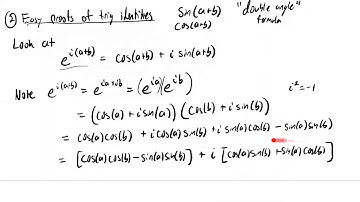 ② Easy proofs of trig identities sin(a+b) "double angle"
cos(a+b) formula
Look at
e^{i(a+b)} = cos(a+b) + i sin(a+b)
Note e^{i(a+b)} = e^{ia+ib} = (e^{ia})(e^{ib}) i²=-1
= (cos(a) + i sin(a)) (cos(b) + i sin(b))
= cos(a)cos(b) + i cos(a)sin(b) + i sin(a)cos(b) - sin(a)sin(b)
= [cos(a)cos(b) - sin(a)sin(b)] + i [cos(a)sin(b) + sin(a)cos(b)]